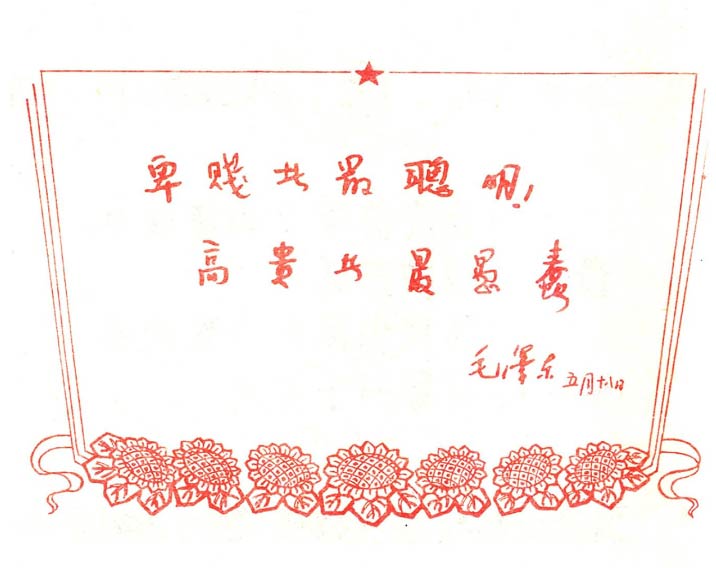 卑贱者最聪明!
高贵者最愚蠢
毛泽东 五月十八日